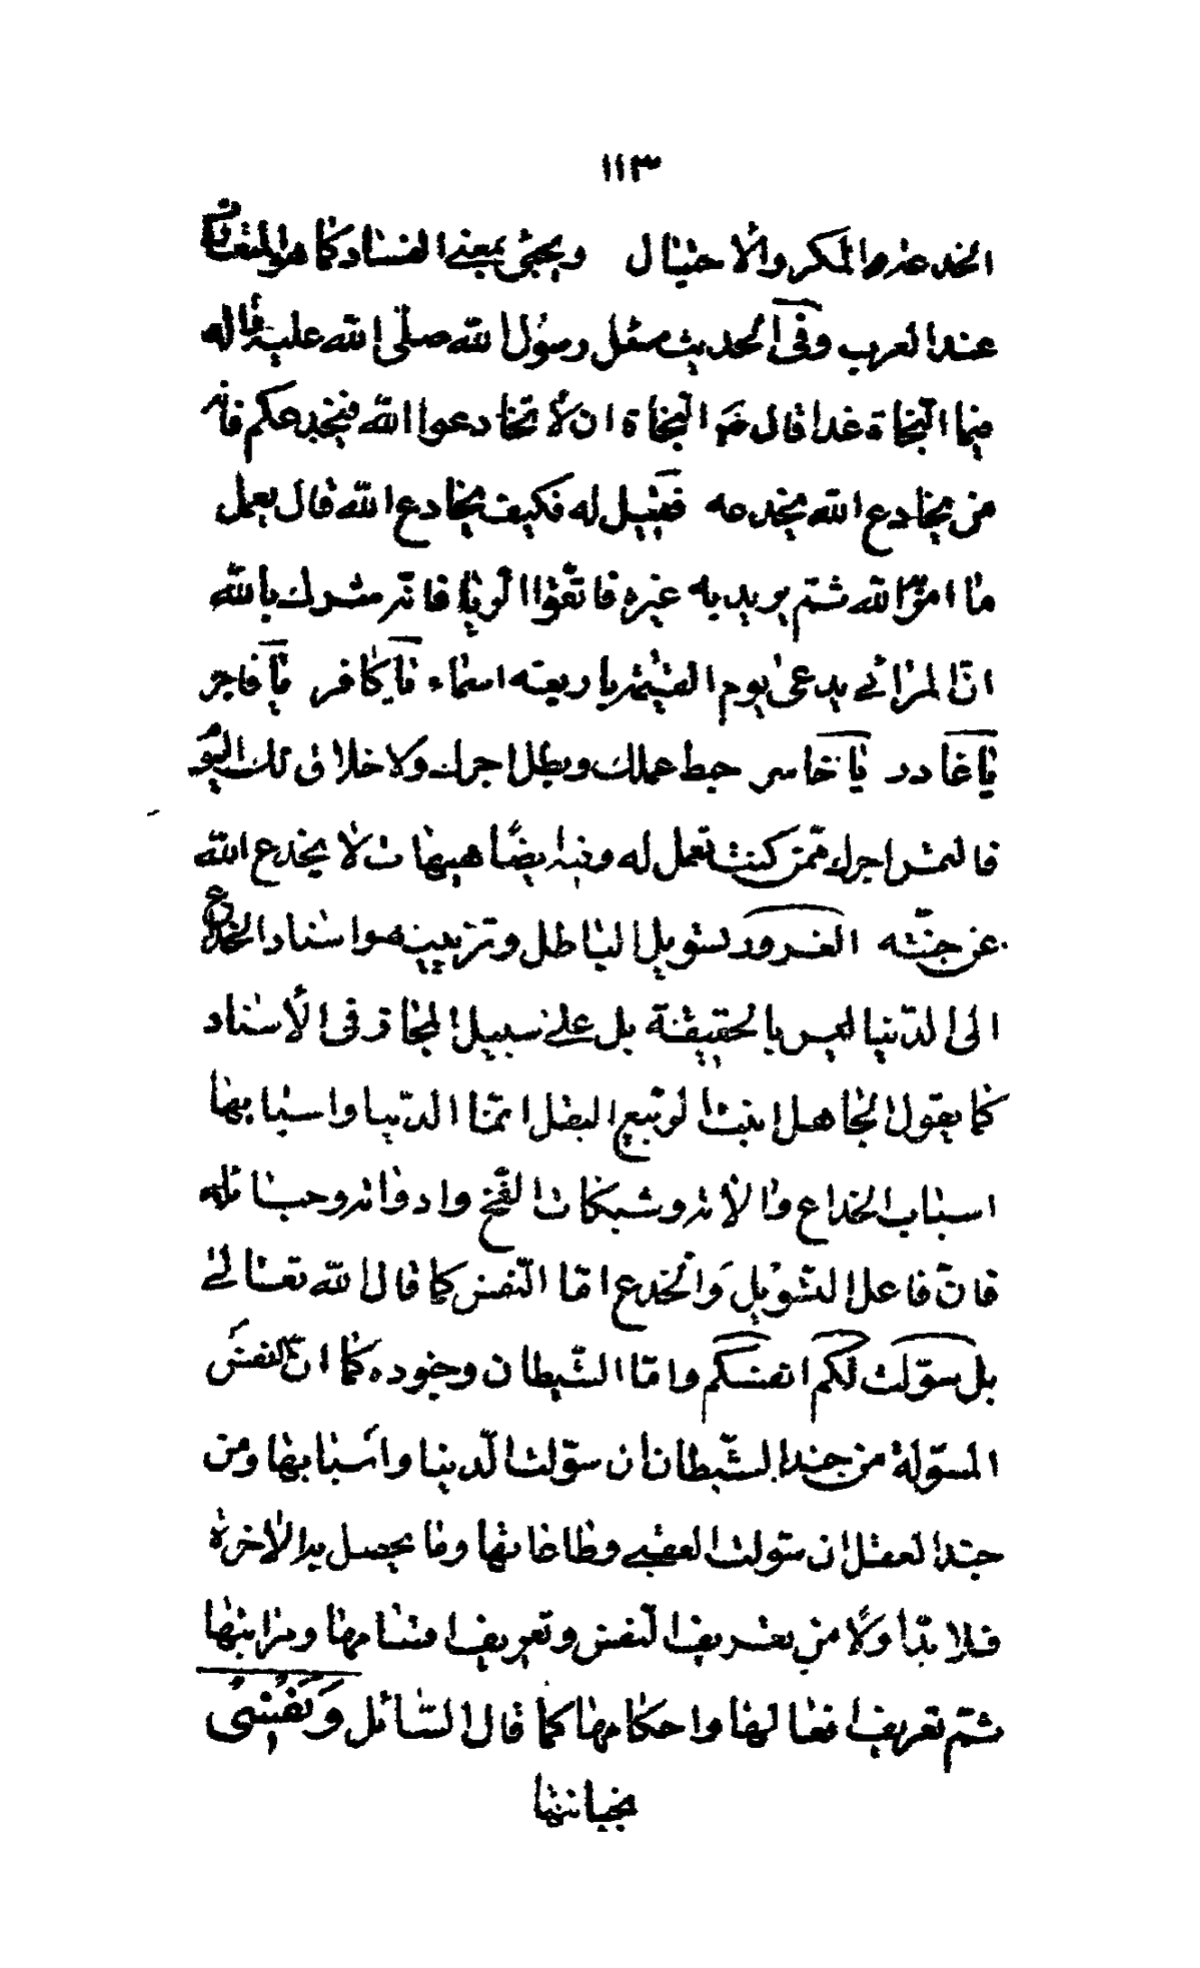 ١١٣
الخدعة والمكر والاحتيال ويجيئ بمعنى الفساد كما هو المتعارف
عند العرب وفى الحديث سئل رسول الله صلّى الله عليه وآله
فيما النّجاة غدا قال انّما النّجاة ان لا تخادعوا الله فيخدعكم فانّه
من يخادع الله يخدعه فقيل له فكيف يخادع الله قال يعمل
ما امره الله ثمّ يريد به غيره فاتّقوا الرّيا فانّه شرك بالله
انّ المرائى يدعى يوم القيمة باربعة اسماء يا كافر يا فاجر
يا غادر يا خاسر حبط عملك وبطل اجرك ولا خلاق لك اليوم
فالتمس اجرك ممّن كنت تعمل له وفيه ايضًا هيهات لا يخدع الله
عن جنّته الغرور تسويل الباطل وتزيينه واسناد الخداع
الى الدّنيا ليس بالحقيقة بل على سبيل المجاز فى الأسناد
كما يقول الجاهل انبت الرّبيع البقل انّما الدّنيا واسبابها
اسباب الخداع والآته وشبكات الفخ وادواته وحبائله
فانّ فاعل التّسويل والخدع امّا النّفس كما قال الله تعالى
بل سوّلت لكم انفسكم وامّا الشّيطان وجنوده كما انّ النّفس
المسوّلة من جند الشّيطان ان سوّلت الدّنيا واسبابها ومن
جند العقل ان سوّلت العقبى وطاعاتها وما يحصل به الآخرة
فلا بدّ اولًا من تعريف النّفس وتعريف مقامها ومراتبها
ثمّ تعريف افعالها واحكامها كما قال السّائل وَنَفْسِى
بخيانتها